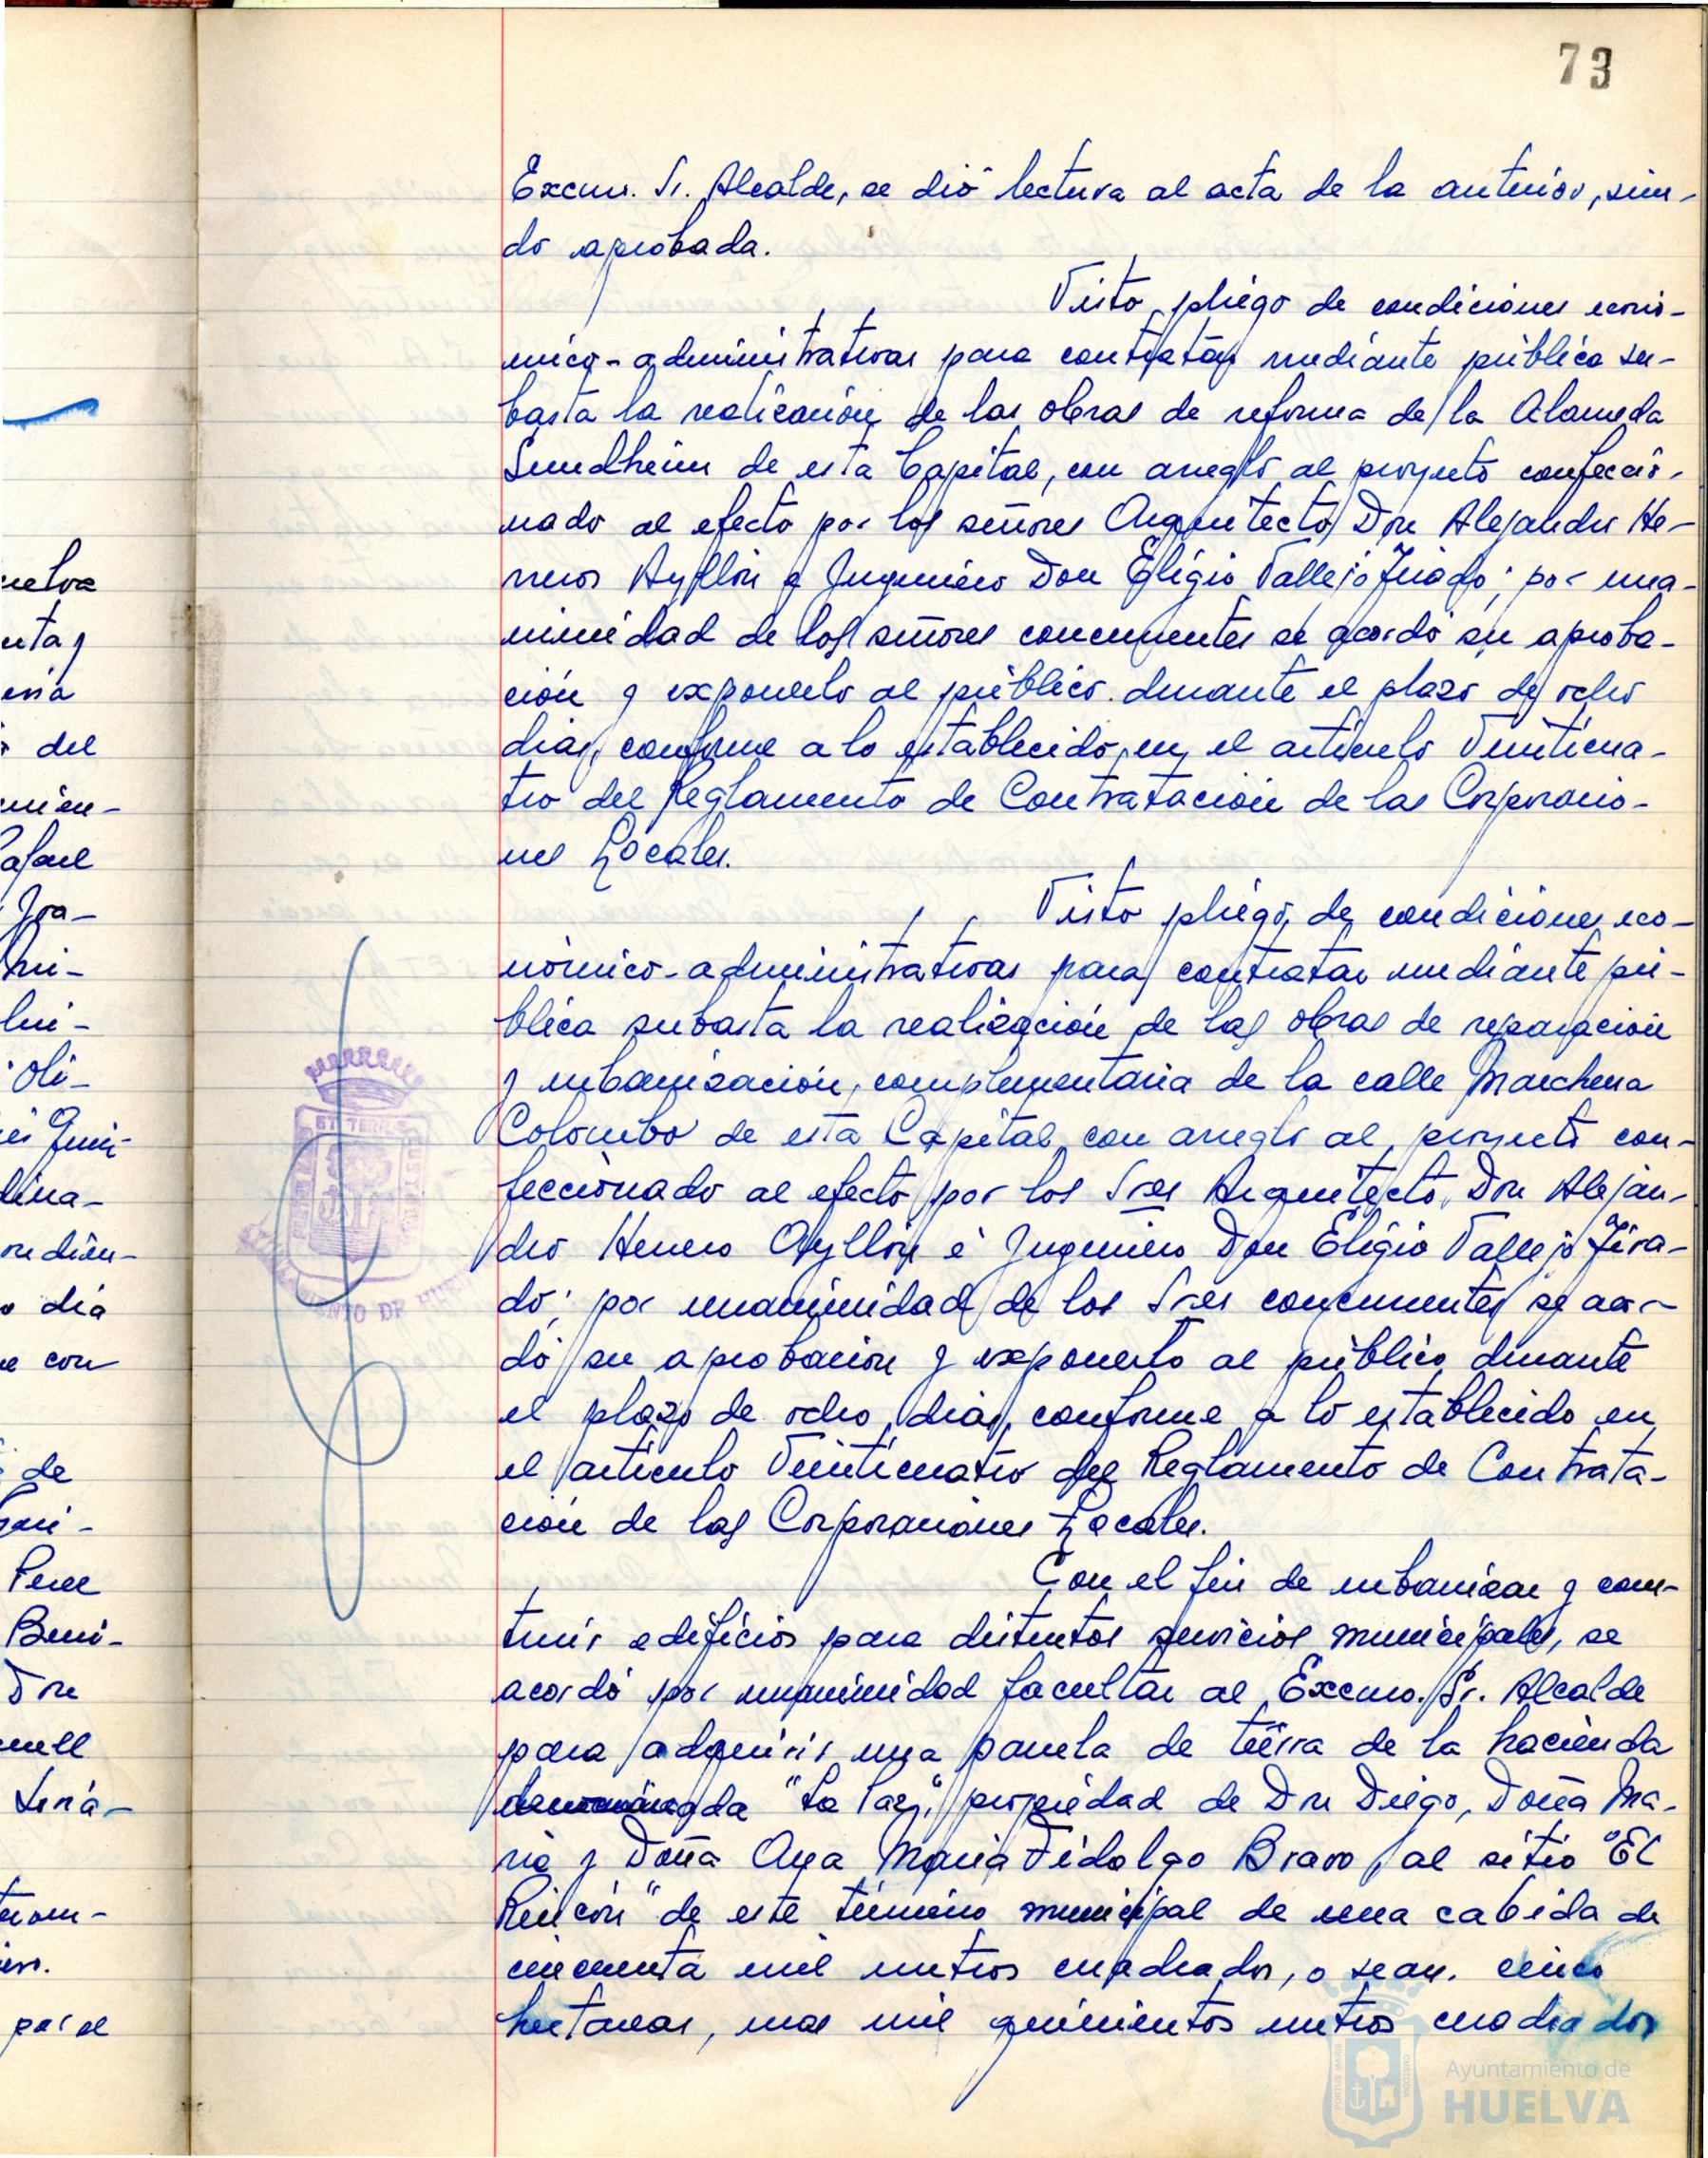 73
Excmo. Sr. Alcalde, se dió lectura al acta de la anterior, sien-
do aprobada.
Visto pliego de condiciones econó-
mico-administrativas para contratar mediante pública su-
basta la realización de las obras de reforma de la Alameda
Sundheim de esta Capital, con arreglo al proyecto confeccio-
nado al efecto por los señores Arquitecto Don Alejandro He-
rrero Ayllón e Ingeniero Don Eligio Vallejo Tirado; por una-
nimidad de los señores concurrentes se acordó su aproba-
ción y exponerlo al público durante el plazo de ocho
dias, conforme a lo establecido en el artículo Veinticua-
tro del Reglamento de Contratación de las Corporacio-
nes Locales.
Visto pliego de condiciones eco-
nómico-administrativas para contratar mediante pú-
blica subasta la realización de las obras de reparación
y urbanización complementaria de la calle Marchena
Colombo de esta Capital con arreglo al proyecto con-
feccionado al efecto por los Sres Arquitecto Don Alejan-
dro Herrero Ayllón é Ingeniero Don Eligio Vallejo Tira-
do; por unanimidad de los Sres concurrentes se acor-
dó su aprobación y exponerlo al público durante
el plazo de ocho dias, conforme a lo establecido en
el artículo Veinticuatro del Reglamento de Contrata-
ción de las Corporaciones Locales.
Con el fin de urbanizar y cons-
truir edificios para distintos servicios municipales, se
acordó por unanimidad facultar al Excmo. Sr. Alcalde
para adquirir una parcela de tierra de la hacienda
denominada "La Paz", propiedad de Don Diego, Doña Ma-
ria y Doña Ana Maria Fidalgo Bravo, al sitio "El
Rincón" de este término municipal de una cabida de
cincuenta mil metros cuadrados, o sean cinco
hectareas, mas mil quinientos metros cuadrados
AYUNTAMIENTO DE HUELVA
Ayuntamiento de
HUELVA
uelva
del
Rafael
Oli-
dia
con
de
Perez
Don
por el